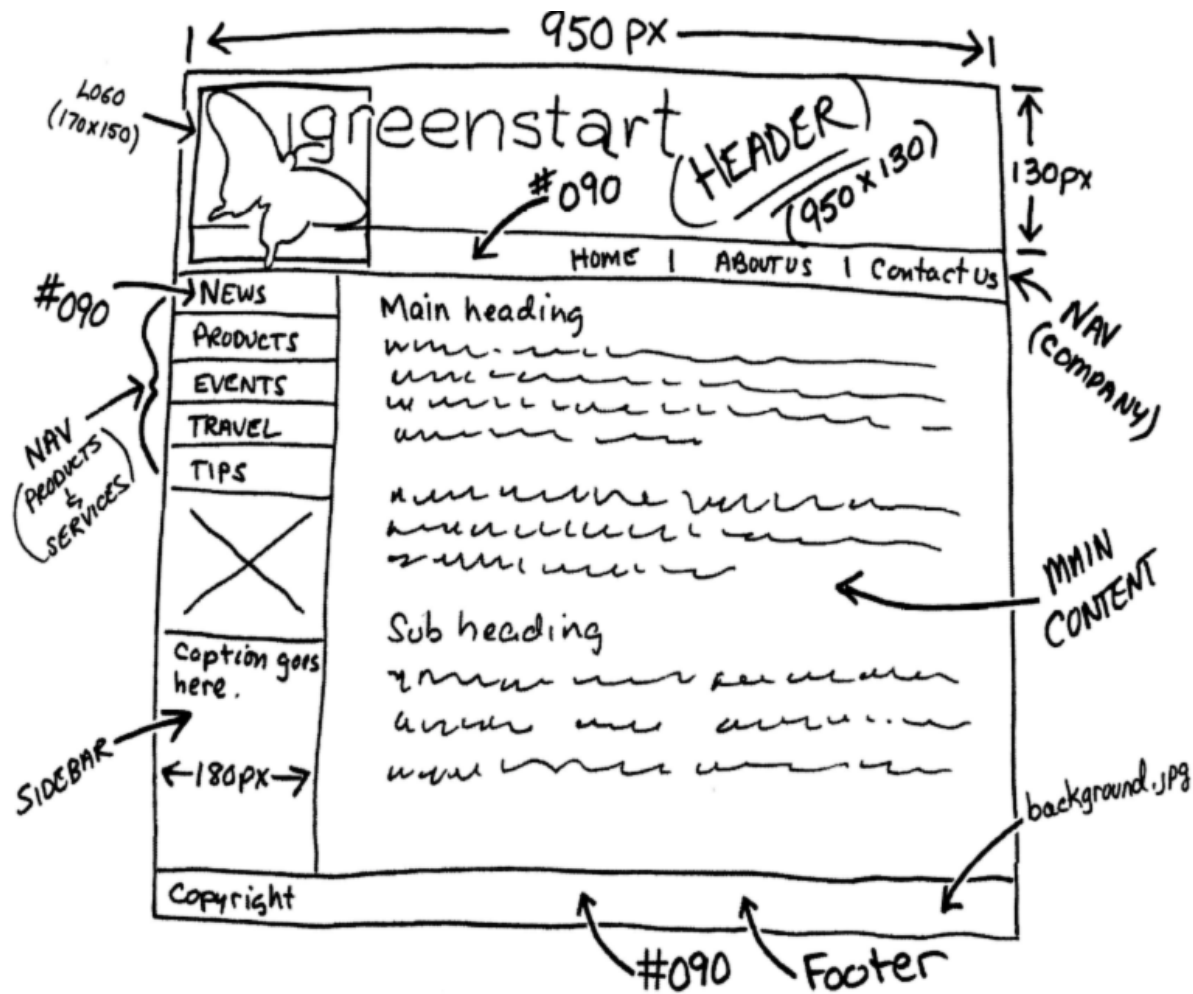 950 PX
LOGO
(170x150)
greenstart
(HEADER)
(950 x 130)
130px
#090
HOME | ABOUT US | Contact Us
NAV
(COMPANY)
#090
NEWS
PRODUCTS
EVENTS
TRAVEL
TIPS
NAV
(PRODUCTS
&
SERVICES)
Main heading
MAIN
CONTENT
Sub heading
Caption goes
here.
SIDEBAR
180PX
background.jpg
Copyright
#090
Footer